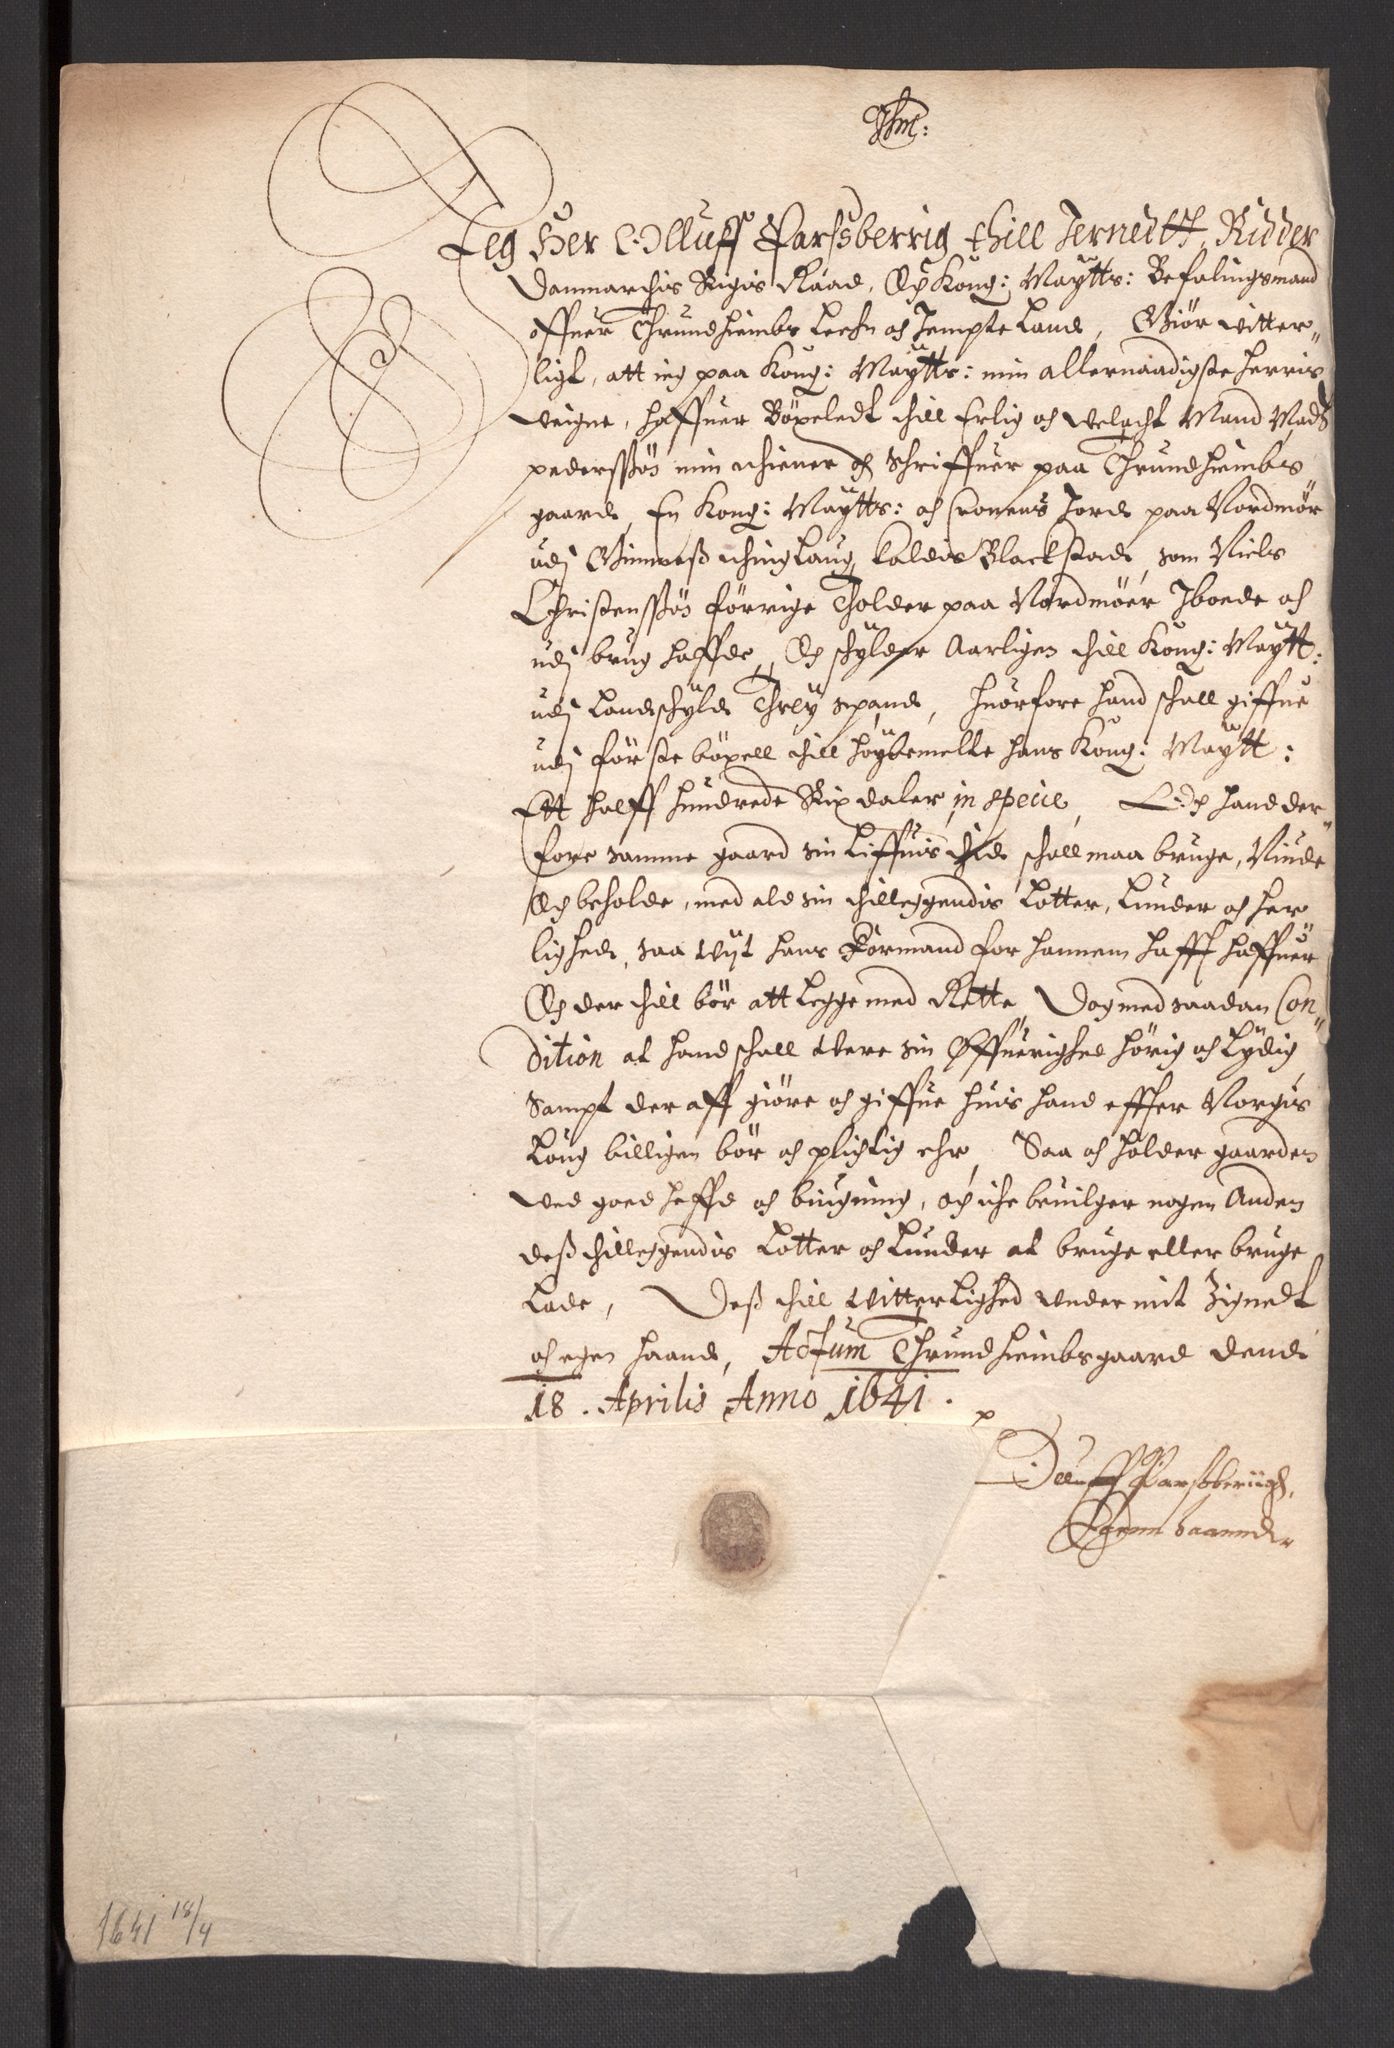 Jhm:
Jeg Her Olluff Parssberrig thill Jernedtt, Ridder
Danmarchis Rigis Raad, Och Kong: Maÿtts: Befalingsmand
offuer Thrundhiembs Leehn och Jempte Land, Giör vitter„
ligt, att ieg paa Kong: Maÿtts: min allernaadigste herris
veigne, haffuer Böxeledt thill Erlig och velacht Mand Mads
pederssøn min thiener och Schriffuer paa Thrundhiembs
gaard, En Kong: Maÿtts: och Cronens Jord paa Nordmør
udj thinglaug, kaldis Blackstad, som Niels
Christenssøn förrige Tholder paa Nordmöer Jboede och
udj brug haffde, Och schylder Aarligen thill Kong: Maÿtt:
udj Landschyld Threÿ spand, huorfore hand schall giffue
udj förste böxell thill höÿbemelte hans Kong: Maÿtt:
Ett halff hundrede Rixdaler in specie, Och hand der„
fore samme gaard sin Liffuis thid schall maa bruge, Niude
Och beholde, med ald sin thilleggendis Lotter, Lunder och her
lighed, saa vijt hans Formand for hannem hafft haffuer
Och der thill bör att Legge med Rette, Dog med saadan Con„
dition at hand schall vere sin Øffuerighed hörig och Lÿdig
Sampt der aff giöre och giffue huis hand effter Norgis
Laug billigen bör och plichtig ehr, Saa och holder gaarden
ved goed heffd och biugning, och iche beuilger nogen Anden
deß thilleggendis Lotter och Lunder at bruge eller bruge
Lade, Deß thill vitterlighed under mit Zignedt
och egen haand, Actum Thrundhiembsgaard dend
18. Aprilis Anno 1641.
Olluff Parssberiigh,
Egenn haanndt
1641 18/4